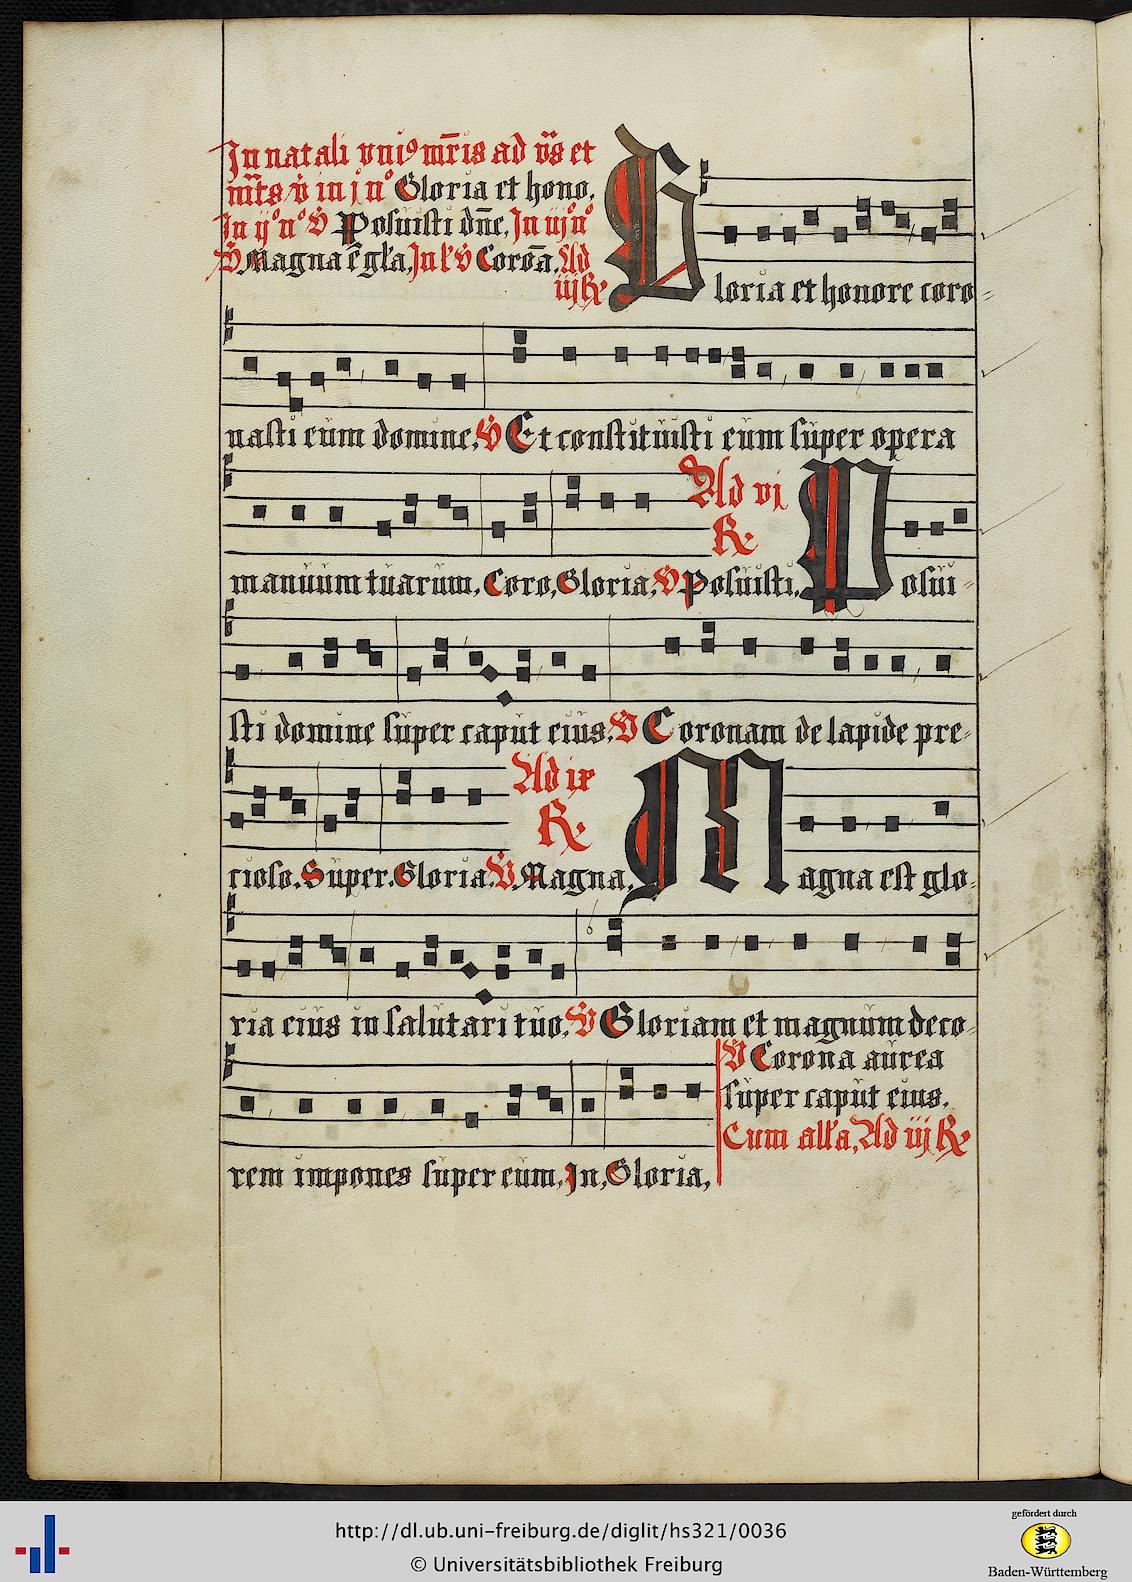 In natali vniꝰ mr̄is ad v̄s et
mr̄ts ℣ in j nº Gloria et hono.
In ijº nº ℣ Posuisti dn̄e, In iijº nº
℣ Magna ē gl'a, In l' ℣ Coron̄a, Ad
iij ℞
Gloria et honore coro-
nasti eum domine, ℣ Et constituisti eum super opera
Ad vj
℞
manuum tuarum, Coro, Gloria, ℣ Posuisti, Posui-
sti domine super caput eius, ℣ Coronam de lapide pre-
Ad ix
℞
cioso. Super. Gloria. ℣. Magna. Magna est glo-
ria eius in salutari tuo, ℣ Gloriam et magnum deco-
rem impones super eum, In, Gloria,
℣ Corona aurea
super caput eius.
Cum all'a, Ad iij ℞
http://dl.ub.uni-freiburg.de/diglit/hs321/0036
© Universitätsbibliothek Freiburg
gefördert durch
Baden-Württemberg